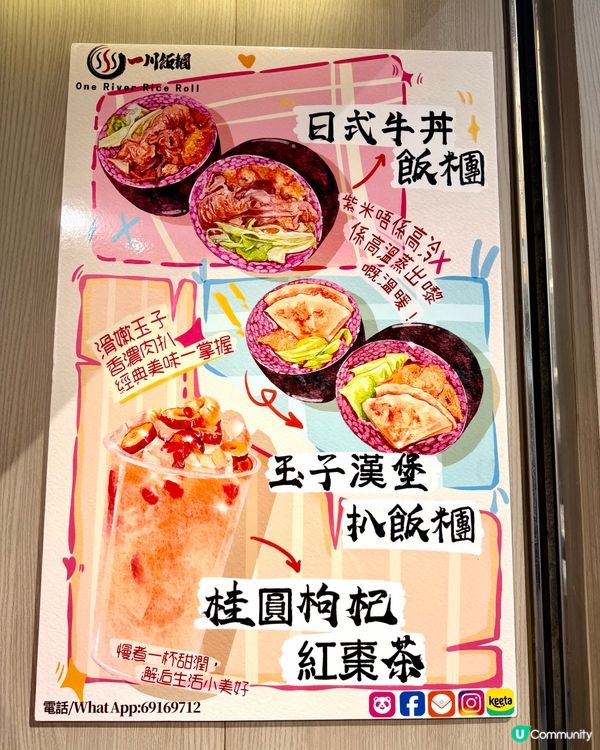 一川飯糰
One River Rice Roll
日式牛丼
飯糰
紫米唔係高冷
係高溫蒸出嚟
嘅溫暖！
滑嫩玉子
香濃肉扒
經典美味一掌握
玉子漢堡
扒飯糰
桂圓枸杞
紅棗茶
慢煮一杯甜潤，
邂逅生活小美好
電話/What App:69169712
keeta
U Community